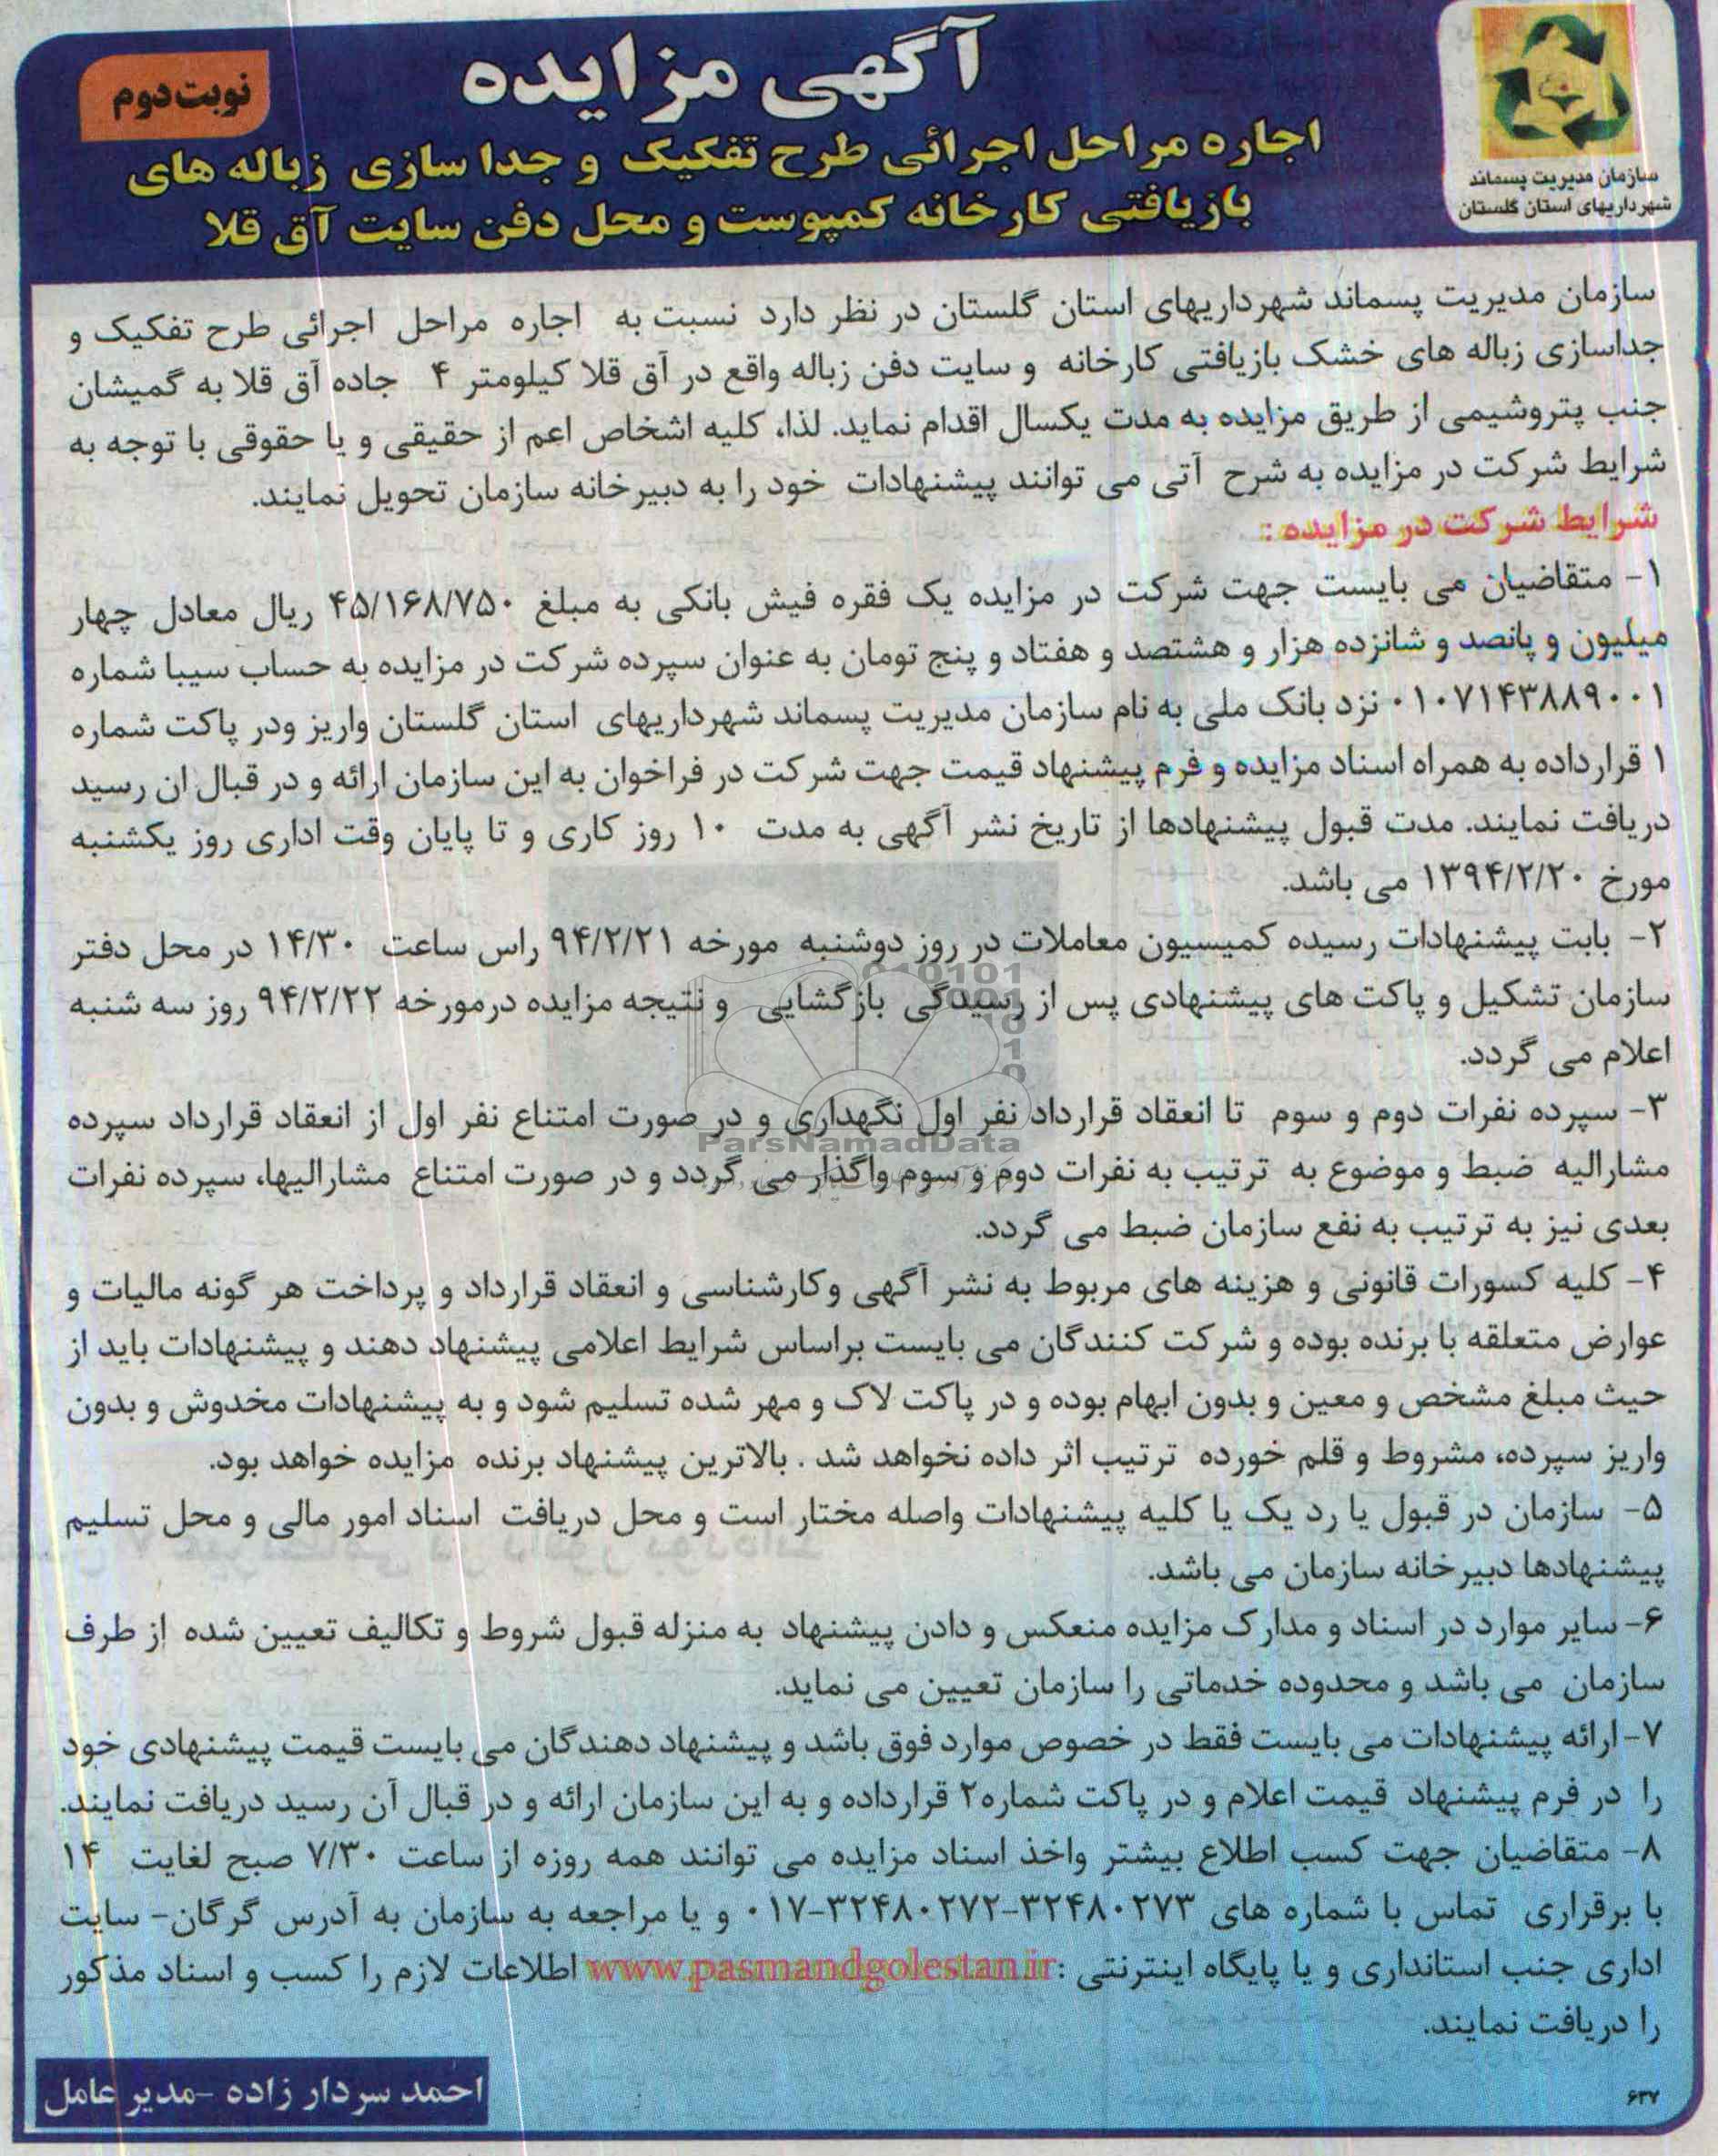 آگهی مزایده
نوبت دوم
اجاره مراحل اجرائی طرح تفکیک و جدا سازی زباله های
بازیافتی کارخانه کمپوست و محل دفن سایت آق قلا
سازمان مدیریت پسماند
شهرداریهای استان گلستان
سازمان مدیریت پسماند شهرداریهای استان گلستان در نظر دارد نسبت به اجاره مراحل اجرائی طرح تفکیک و
جداسازی زباله های خشک بازیافتی کارخانه و سایت دفن زباله واقع در آق قلا کیلومتر ۴ جاده آق قلا به گمیشان
جنب پتروشیمی از طریق مزایده به مدت یکسال اقدام نماید. لذا، کلیه اشخاص اعم از حقیقی و یا حقوقی با توجه به
شرایط شرکت در مزایده به شرح آتی می توانند پیشنهادات خود را به دبیرخانه سازمان تحویل نمایند.
شرایط شرکت در مزایده :
۱- متقاضیان می بایست جهت شرکت در مزایده یک فقره فیش بانکی به مبلغ ۴۵/۱۶۸/۷۵۰ ریال معادل چهار
میلیون و پانصد و شانزده هزار و هشتصد و هفتاد و پنج تومان به عنوان سپرده شرکت در مزایده به حساب سیبا شماره
۰۱۰۷۱۴۳۸۸۹۰۰۱ نزد بانک ملی به نام سازمان مدیریت پسماند شهرداریهای استان گلستان واریز ودر پاکت شماره
۱ قرارداده به همراه اسناد مزایده و فرم پیشنهاد قیمت جهت شرکت در فراخوان به این سازمان ارائه و در قبال ان رسید
دریافت نمایند. مدت قبول پیشنهادها از تاریخ نشر آگهی به مدت ۱۰ روز کاری و تا پایان وقت اداری روز یکشنبه
مورخ ۱۳۹۴/۲/۲۰ می باشد.
۲- بابت پیشنهادات رسیده کمیسیون معاملات در روز دوشنبه مورخه ۹۴/۲/۲۱ راس ساعت ۱۴/۳۰ در محل دفتر
سازمان تشکیل و پاکت های پیشنهادی پس از رسیدگی بازگشایی و نتیجه مزایده درمورخه ۹۴/۲/۲۲ روز سه شنبه
اعلام می گردد.
۳- سپرده نفرات دوم و سوم تا انعقاد قرارداد نفر اول نگهداری و در صورت امتناع نفر اول از انعقاد قرارداد سپرده
ParsNamadData
مشارالیه ضبط و موضوع به ترتیب به نفرات دوم و سوم واگذار می گردد و در صورت امتناع مشارالیها، سپرده نفرات
بعدی نیز به ترتیب به نفع سازمان ضبط می گردد.
۴- کلیه کسورات قانونی و هزینه های مربوط به نشر آگهی وکارشناسی و انعقاد قرارداد و پرداخت هر گونه مالیات و
عوارض متعلقه با برنده بوده و شرکت کنندگان می بایست براساس شرایط اعلامی پیشنهاد دهند و پیشنهادات باید از
حیث مبلغ مشخص و معین و بدون ابهام بوده و در پاکت لاک و مهر شده تسلیم شود و به پیشنهادات مخدوش و بدون
واریز سپرده، مشروط و قلم خورده ترتیب اثر داده نخواهد شد . بالاترین پیشنهاد برنده مزایده خواهد بود.
۵- سازمان در قبول یا رد یک یا کلیه پیشنهادات واصله مختار است و محل دریافت اسناد امور مالی و محل تسلیم
پیشنهادها دبیرخانه سازمان می باشد.
۶- سایر موارد در اسناد و مدارک مزایده منعکس و دادن پیشنهاد به منزله قبول شروط و تکالیف تعیین شده از طرف
سازمان می باشد و محدوده خدماتی را سازمان تعیین می نماید.
۷- ارائه پیشنهادات می بایست فقط در خصوص موارد فوق باشد و پیشنهاد دهندگان می بایست قیمت پیشنهادی خود
را در فرم پیشنهاد قیمت اعلام و در پاکت شماره۲ قرارداده و به این سازمان ارائه و در قبال آن رسید دریافت نمایند.
۸- متقاضیان جهت کسب اطلاع بیشتر واخذ اسناد مزایده می توانند همه روزه از ساعت ۷/۳۰ صبح لغایت ۱۴
با برقراری تماس با شماره های ۳۲۴۸۰۲۷۳-۳۲۴۸۰۲۷۲-۰۱۷ و یا مراجعه به سازمان به آدرس گرگان- سایت
اداری جنب استانداری و یا پایگاه اینترنتی :www.pasmandgolestan.ir اطلاعات لازم را کسب و اسناد مذکور
را دریافت نمایند.
احمد سردار زاده -مدیر عامل
۶۳۷